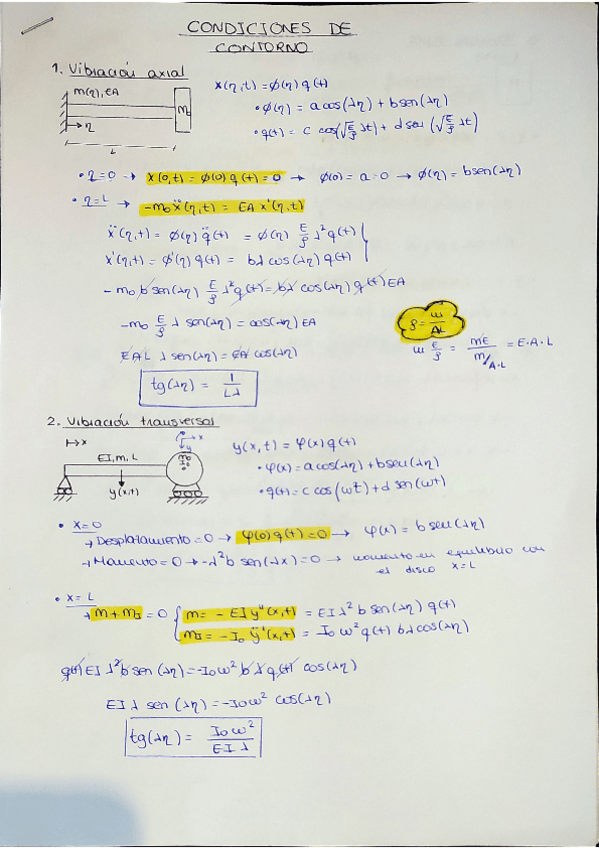 CONDICIONES DE
CONTORNO
1. Vibración axial
m(η), EA
m₀
η
L
x(η,t) = φ(η) q(t)
• φ(η) = a cos(λη) + b sen(λη)
• q(t) = c cos(√(E/ρ) λt) + d sen(√(E/ρ) λt)
• η=0 → x(0,t) = φ(0) q(t) = 0 → φ(0) = a = 0 → φ(η) = b sen(λη)
• η=L → -m₀ẍ(η,t) = EA x'(η,t)
ẍ(η,t) = φ(η) q̈(t) = φ(η) E/ρ λ² q(t)
x'(η,t) = φ'(η) q(t) = bλ cos(λη) q(t)
-m₀ b sen(λη) E/ρ λ² q(t) = bλ cos(λη) q(t) EA
-m₀ E/ρ λ sen(λη) = cos(λη) EA
EAL λ sen(λη) = EA cos(λη)
tg(λη) = 1/(Lλ)
ρ = m/(AL)
m E/ρ = mE/(m/A·L) = E·A·L
2. Vibración transversal
x
EI, m, L
y(x,t)
m₀
I₀
x
y
y(x,t) = φ(x) q(t)
• φ(x) = a cos(λη) + b sen(λη)
• q(t) = c cos(ωt) + d sen(ωt)
• x=0
→ Desplazamiento = 0 → φ(0) q(t) = 0 → φ(x) = b sen(λη)
→ Momento = 0 → -λ² b sen(λx) = 0 → momento en equilibrio con
el disco x=L
• x=L
→ m + m_I = 0 { m = -EI y''(x,t) = EI λ² b sen(λη) q(t)
m_I = -I₀ ÿ'(x,t) = I₀ ω² q(t) bλ cos(λη)
q(t) EI λ² b sen(λη) = -I₀ω² b λ q(t) cos(λη)
EI λ sen(λη) = -I₀ω² cos(λη)
tg(λη) = I₀ω²/(EI λ)